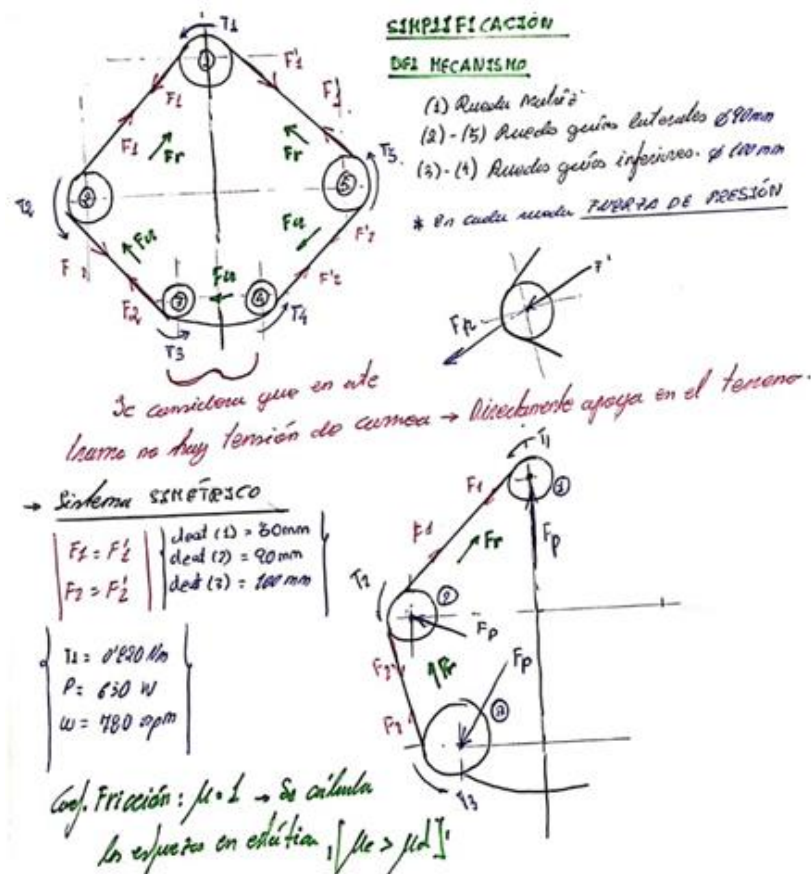 SIMPLIFICACIÓN
DEL MECANISMO
(1) Rueda Motriz
(2)-(5) Ruedas guías laterales ø90mm
(3)-(4) Ruedas guías inferiores. ø100mm
* En cada rueda FUERZA DE PRESIÓN
T1
1
F1 F'1
F1 F'1
Fr Fr
T5
T2
2 5
Fr Fr
F2 F'2
F2 Fr F'2
3 4
T3 T4
F'
Fp
Se considera que en este
tramo no hay tensión de correa → Directamente apoya en el terreno.
→ Sistema SIMÉTRICO
F1 = F'1
F2 = F'2
dext (1) = 80mm
dext (2) = 90mm
dext (3) = 100mm
T1 =
P = 630 W
ω = 780 rpm
Coef. Fricción: μ=1 → Se calcula
los esfuerzos en estática, [μe > μd]
T1
F1 1
F1
Fr Fp
T2
2
Fp
F2 Fr Fp
F2 3
T3